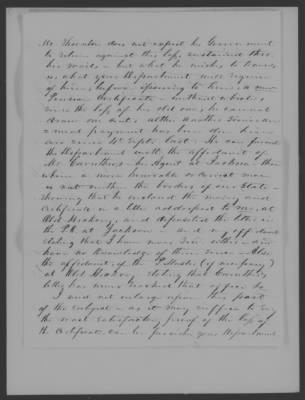 Mr. Thornton does not expect the Government
to return against the loss sustained thro.
the mails - but what he wishes to know
is, what your Department will require
of him, before issuing to him a new
Pension Certificate - without which
since the loss of his old one, he cannot
draw one cent, altho another Semi
annual payment has been due him
ever since 4th Sept. last. He can furnish
the Department with the affidavit of
Mr. Carruthers - the Agent at Jackson, than
whom a more honorable & correct man
is not within the borders of our State -
showing that he enclosed the money and
Certificate in a letter addressed to me, at
West Roxbury, and deposited the letter in
the P.O. at Jackson - and my affidavit
stating that I have never seen either - nor
have no knowledge of them since - Also
the affidavit of the Postmaster (if necessary)
at West Roxbury stating that Carruthers
letter has never reached that office &c.
I need not enlarge upon this part
of the subject - as it may suffice to say
the most satisfactory proof of the loss of
the Certificate can be furnished your Department